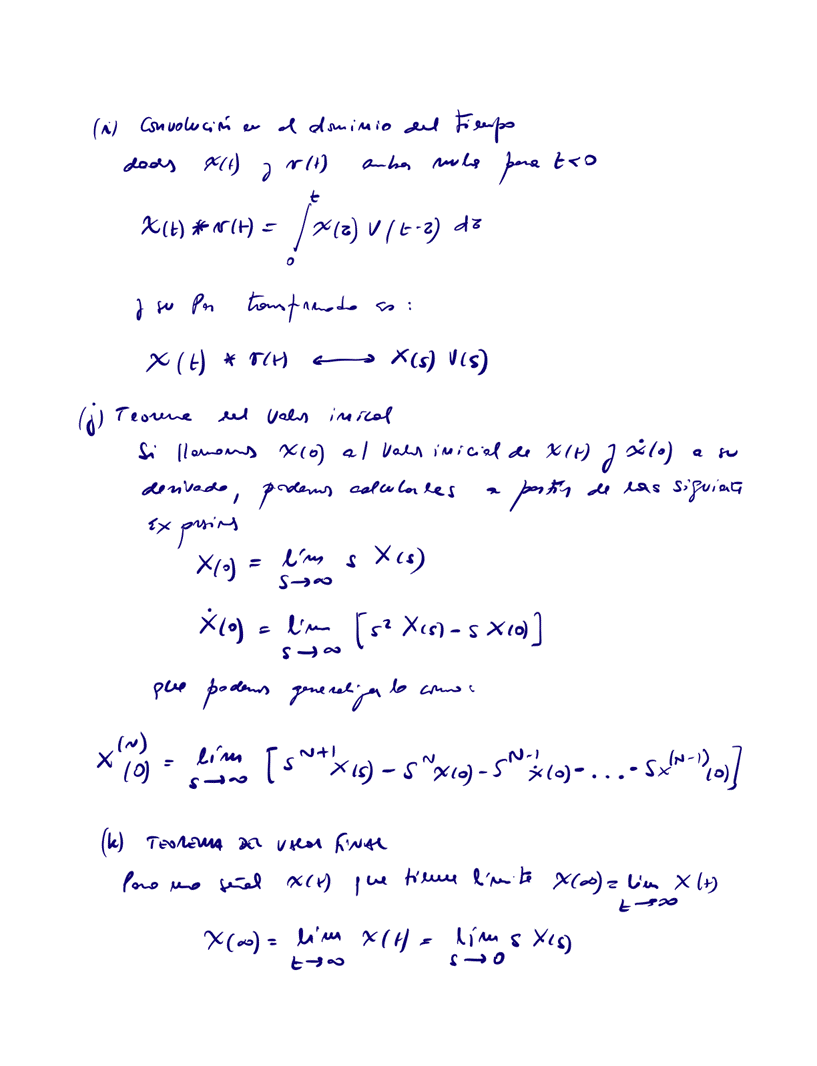 (i) Convolución en el dominio del tiempo
dadas x(t) y v(t) ambas nulas para t<0
x(t) * v(t) = ∫₀ᵗ x(τ) v(t-τ) dτ
y su par transformado es:
x(t) * v(t) ⟷ X(s) V(s)
(j) Teorema del valor inicial
Si llamamos x(0) al valor inicial de x(t) y ẋ(0) a su
derivada, podemos calcularles a partir de las siguiente
expresions
x(0) = lím s→∞ s X(s)
ẋ(0) = lím s→∞ [s² X(s) - s x(0)]
que podemos generalizarlo como:
x⁽ᴺ⁾(0) = lím s→∞ [s^(N+1) X(s) - s^N x(0) - s^(N-1) ẋ(0) - ... - s x^(N-1)(0)]
(k) TEOREMA DEL VALOR FINAL
Para una señal x(t) que tiene límite x(∞) = lím t→∞ x(t)
x(∞) = lím t→∞ x(t) = lím s→0 s X(s)